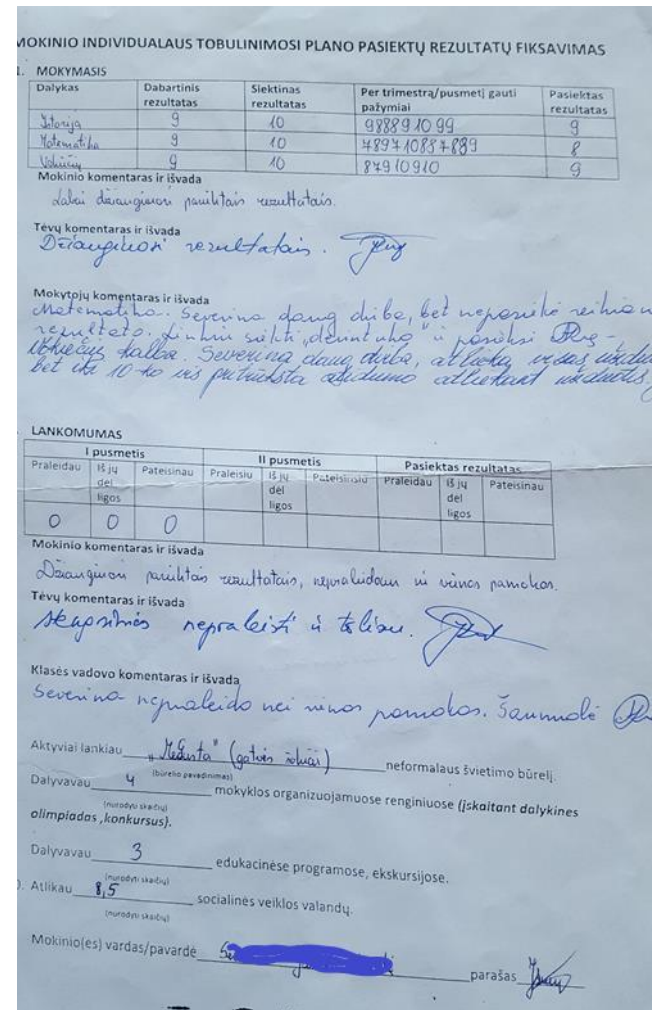 MOKINIO INDIVIDUALAUS TOBULINIMOSI PLANO PASIEKTŲ REZULTATŲ FIKSAVIMAS
MOKYMASIS
Dalykas Dabartinis rezultatas Siektinas rezultatas Per trimestrą/pusmetį gauti pažymiai Pasiektas rezultatas
Istorija 9 10 988891099 9
Matematika 9 10 8
9 10 87910910 9
Mokinio komentaras ir išvada
Labai džiaugiuosi rezultatais.
Tėvų komentaras ir išvada
Džiaugiuosi rezultatais.
Mokytojų komentaras ir išvada
Matematika. Severina daug dirba, bet nepasiekė
rezultato. Linkiu siekti „dešimtuko" ir
Vokiečių kalba. Severina daug dirba, atlieka visas
bet iki 10-ko vis pritrūksta atidumo atliekant užduotis.
LANKOMUMAS
I pusmetis II pusmetis Pasiektas rezultatas
Praleidau Iš jų dėl ligos Pateisinau Praleisiu Iš jų dėl ligos Pateisinsiu Praleidau Iš jų dėl ligos Pateisinau
0 0 0
Mokinio komentaras ir išvada
Džiaugiuosi rezultatais, nepraleidau ni vienos pamokos.
Tėvų komentaras ir išvada
nepraleisti ir toliau.
Klasės vadovo komentaras ir išvada
Severina nepraleido nei vienos pamokos. Šaunuolė
Aktyviai lankiau (gatvės šokiai) neformalaus švietimo būrelį.
(būrelio pavadinimas)
Dalyvavau 4 mokyklos organizuojamuose renginiuose (įskaitant dalykines
(nurodyti skaičių)
olimpiadas ,konkursus).
Dalyvavau 3 edukacinėse programose, ekskursijose.
(nurodyti skaičių)
Atlikau 8,5 socialinės veiklos valandų.
(nurodyti skaičių)
Mokinio(ės) vardas/pavardė parašas